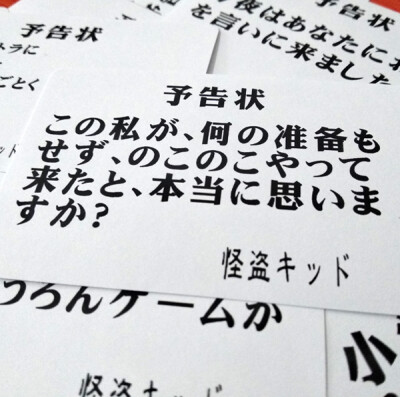 予告状
この私が、何の准备も
せず、のこのこやって
来たと、本当に思いま
すか?
怪盗キッド
予告状
夜はあなたに
を言いに来ました
トラに
ごとく
ッド
うろんゲームが
怪盗キッド
小